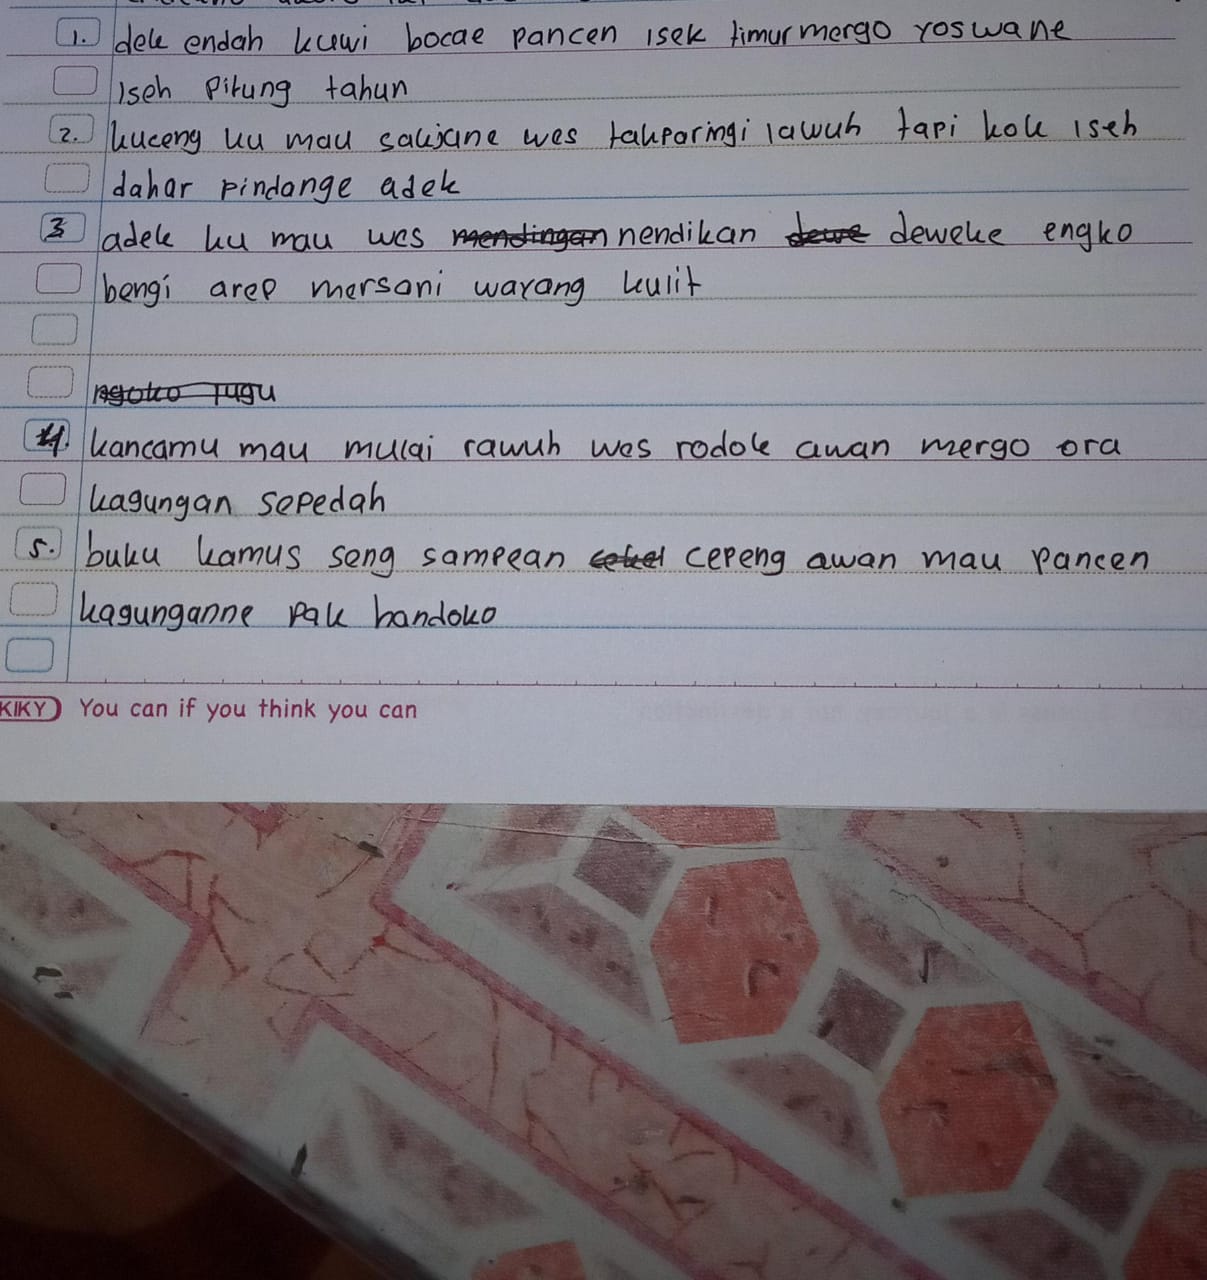 1. dek endah kuwi bocae pancen isek timur mergo yoswane
iseh pitung tahun
2. kuceng ku mau sakjane wes takparingi lawuh tapi kok iseh
dahar pindange adek
3 adek ku mau wes mendingan nendikan dewe deweke engko
bengi arep mersani wayang kulit
ngoko lugu
4. kancamu mau mulai rawuh wes rodok awan mergo ora
kagungan sepedah
5. buku kamus seng sampean cepeng awan mau pancen
kagunganne pak handoko
KIKY You can if you think you can